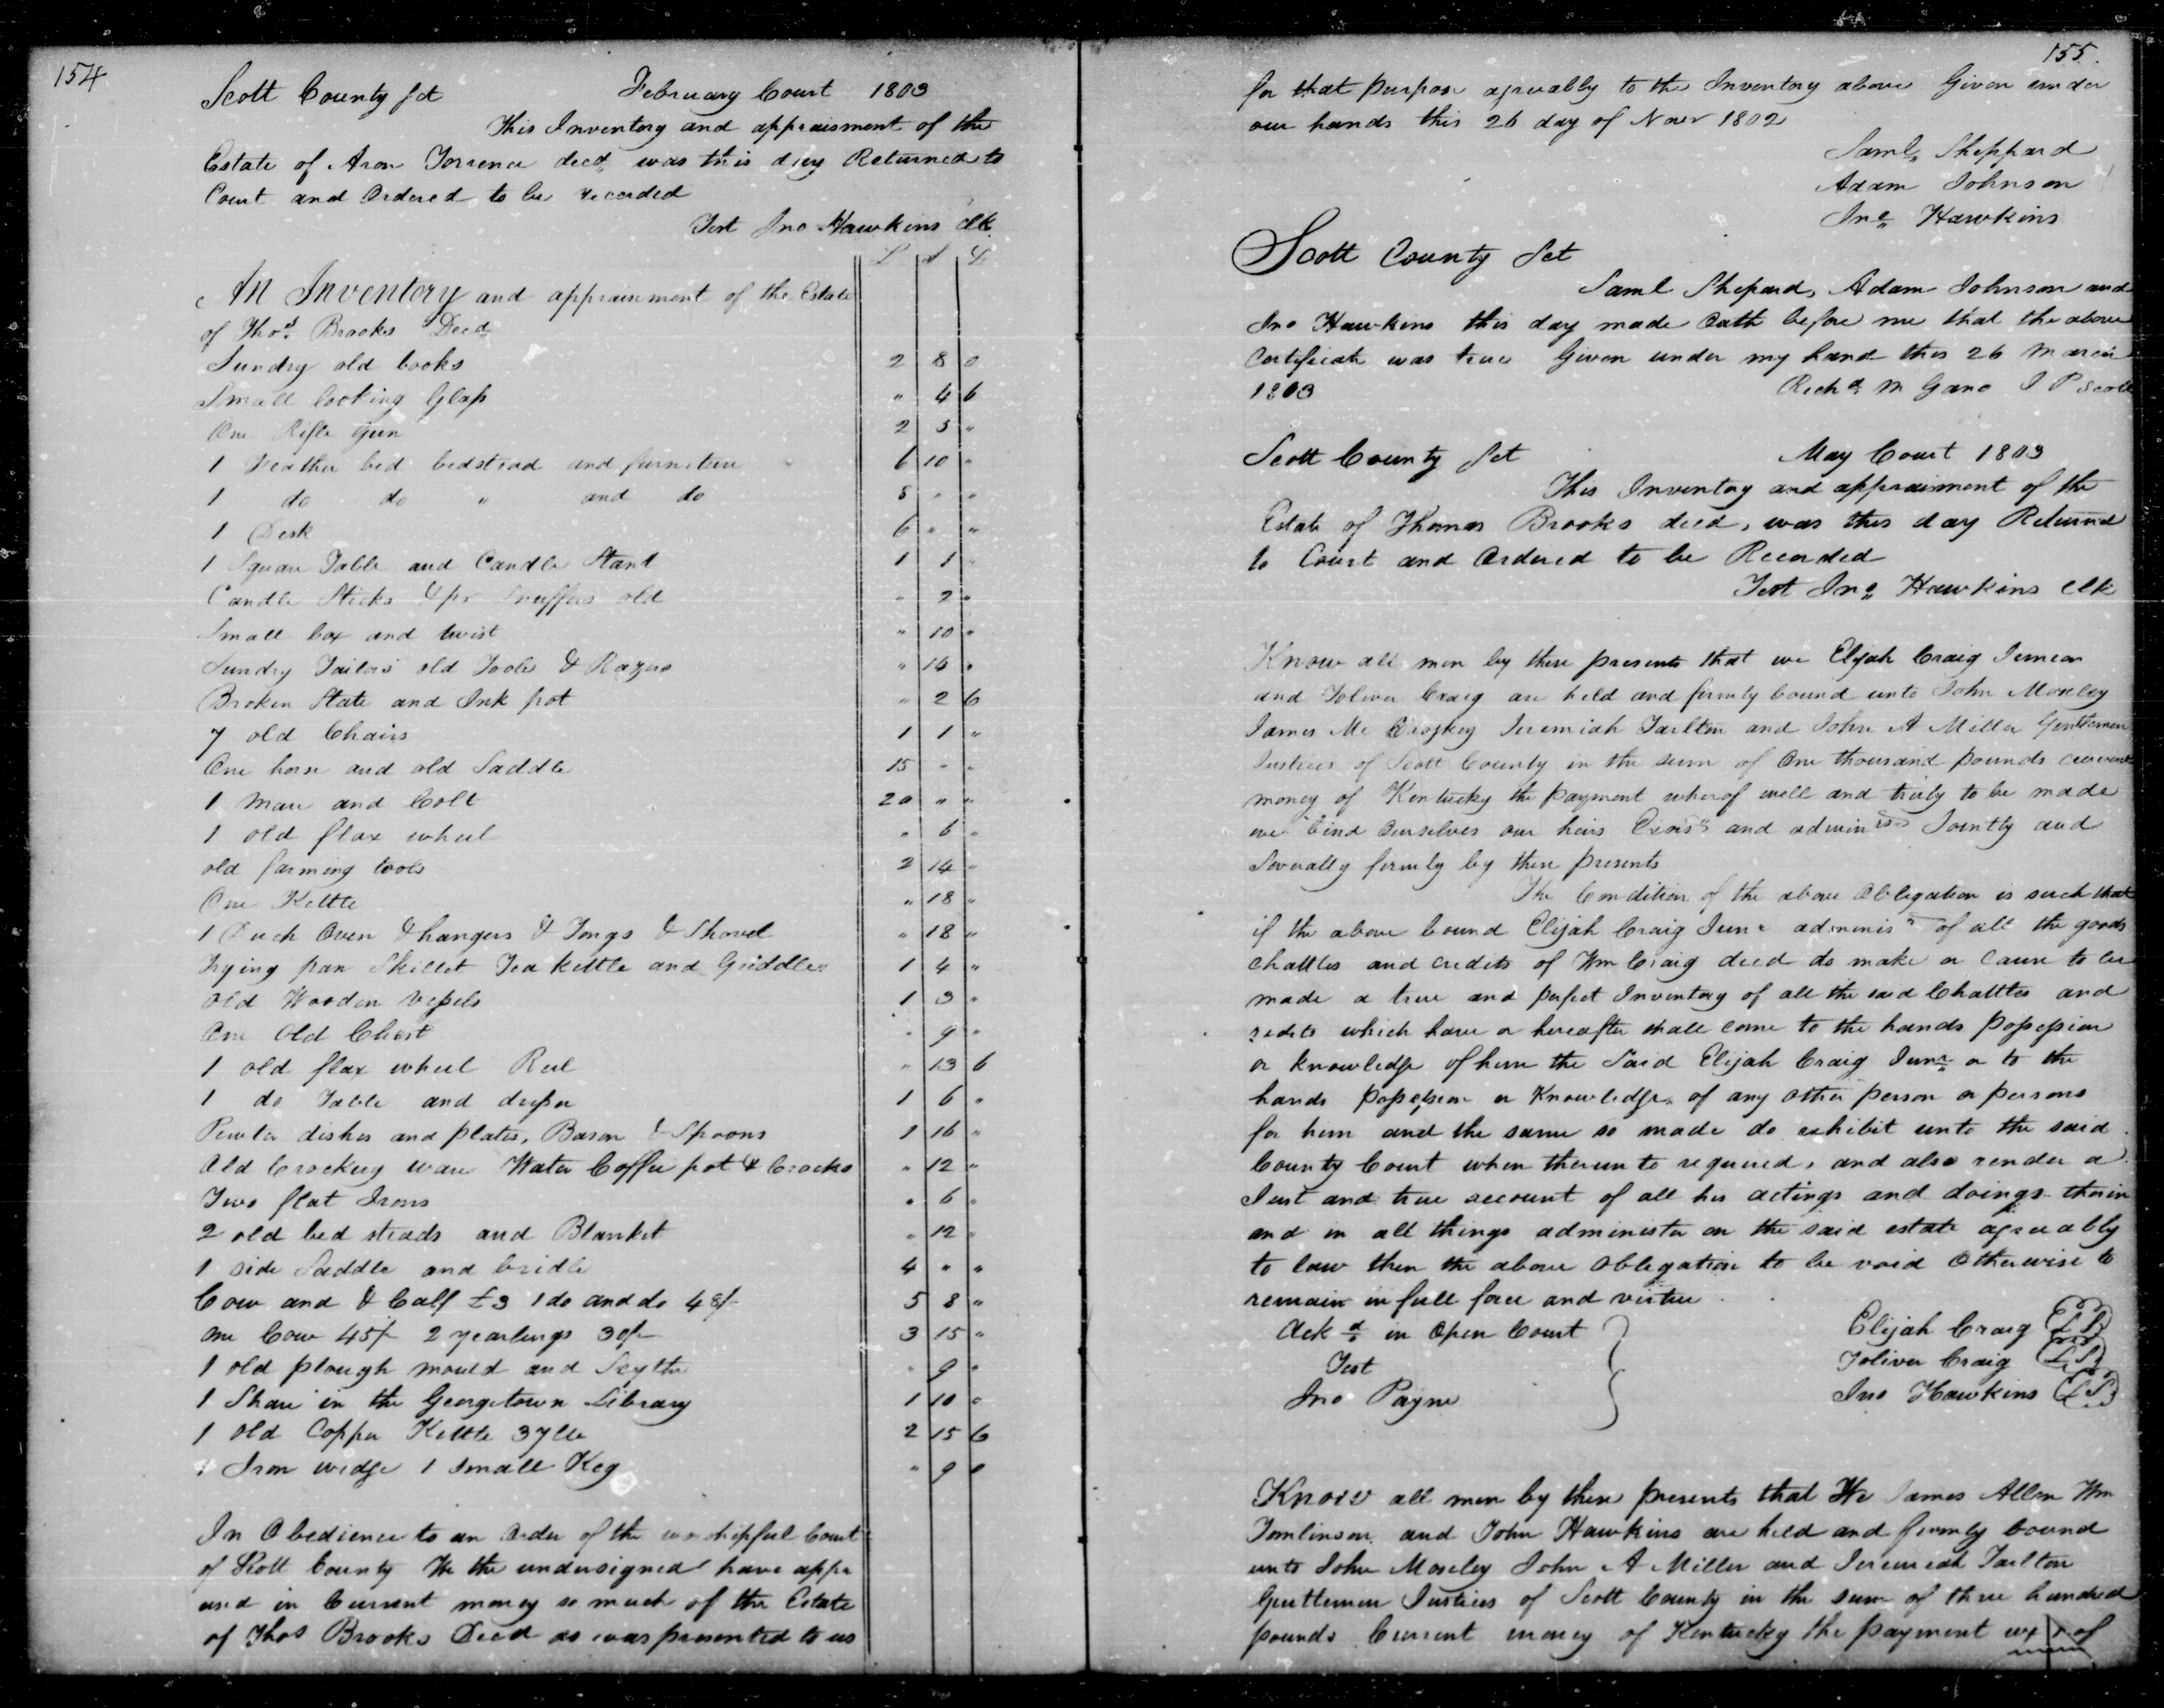 154
Scott County Sct February Court 1803
This Inventory and appraisment of the
Estate of Aron Torrence decd, was this day Returned to
Court and Ordered to be recorded
Test Jno Hawkins Clk.
L S D
An Inventory and appraisement of the Estate
of Thos. Brooks Decd
Sundry old books 2 8 0
Small looking Glass " 4 6
One Rifle Gun 2 5 "
1 Feather bed bedstead and furniture 6 10 "
1 do do " and do 5 " "
1 Desk 6 " "
1 Square Table and Candle Stand 1 1 "
Candle Sticks & pr Snuffers old " 2 "
Small box and twist " 10 "
Sundry Tailors old Tools & Razors " 14 "
Broken Slate and Ink pot " 2 6
7 old Chairs 1 1 "
One horse and old Saddle 15 " "
1 Mare and Colt 20 " "
1 old flax wheel " 6 "
old farming tools 2 14 "
One Kettle " 18 "
1 Duch Oven & hangers & Tongs & Shovel " 18 "
Frying pan Skillet Tea kettle and Griddle 1 4 "
old Wooden Vessels 1 3 "
One Old Chest " 9 "
1 old flax wheel Reel " 13 6
1 do Table and dresser 1 6 "
Pewter dishes and plates, Bason & Spoons 1 16 "
Old Crockery ware Water Coffee pot & Crocks " 12 "
Two flat Irons " 6 "
2 old bed steads and Blanket " 12 "
1 side Saddle and bridle 4 " "
Cow and & Calf £3 1 do and do 48/- 5 8 "
one Cow 45/- 2 yearlings 30/- 3 15 "
1 old plough mould and Scythe " 9 "
1 Share in the Georgetown Library 1 10 "
1 old Copper Kettle 37 lb 2 15 6
1 Iron wedge 1 Small Keg " 9 0
In Obedience to an Order of the worshipful Court
of Scott County We the undersigned have appr
ased in Current money so much of the Estate
of Thos Brooks Decd as was presented to us
155.
for that purpose agreeably to the Inventory above Given under
our hands this 26 day of Novr 1802
Saml, Sheppard
Adam Johnson
Jno, Hawkins
Scott County Sct
Saml Shepard, Adam Johnson and
Jno Hawkins this day made Oath before me that the above
Certificate was true Given under my hand this 26 March
1803 Richd M Gano J P Scott
Scott County Sct May Court 1803
This Inventory and appraisment of the
Estate of Thomas Brooks decd, was this day Returned
to Court and Ordered to be Recorded
Test Jno, Hawkins Clk
Know all men by these presents that we Elijah Craig Junior
and Toliver Craig are held and firmly bound unto John Moseley
James Mc Croskey Jeremiah Tarlton and John A Miller Gentlemen
Justices of Scott County in the sum of One thousand pounds current
money of Kentucky the payment wherof well and truly to be made
we bind Ourselves our heirs Exors and adminrs Jointly and
Severally firmly by these presents
The Condition of the above Obligation is such that
if the above bound Elijah Craig Junr adminisr of all the goods
chattles and credits of Wm Craig decd do make or cause to be
made a true and perfect Inventory of all the said Chattles and
redits which have or hereafter shall come to the hands possession
or knowledge of him the Said Elijah Craig Junr, or to the
hands possession or Knowledge of any other person or persons
for him and the same so made do exhibit unto the said
County Court when thereunto required, and also render a
Just and true account of all his actings and doings therein
and in all things administer on the said estate agreeably
to law then the above obligation to be void Otherwise to
remain in full force and virtue
Ackd in Open Court Elijah Craig L S
Test Toliver Craig L S
Jno Payne Jno Hawkins L S
Know all men by these presents that We James Allen Wm
Tomlinson and John Hawkins are held and firmly bound
unto John Moseley John A Miller and Jeremiah Tarlton
Gentlemen Justices of Scott County in the sum of three hundred
pounds Current money of Kentucky the payment